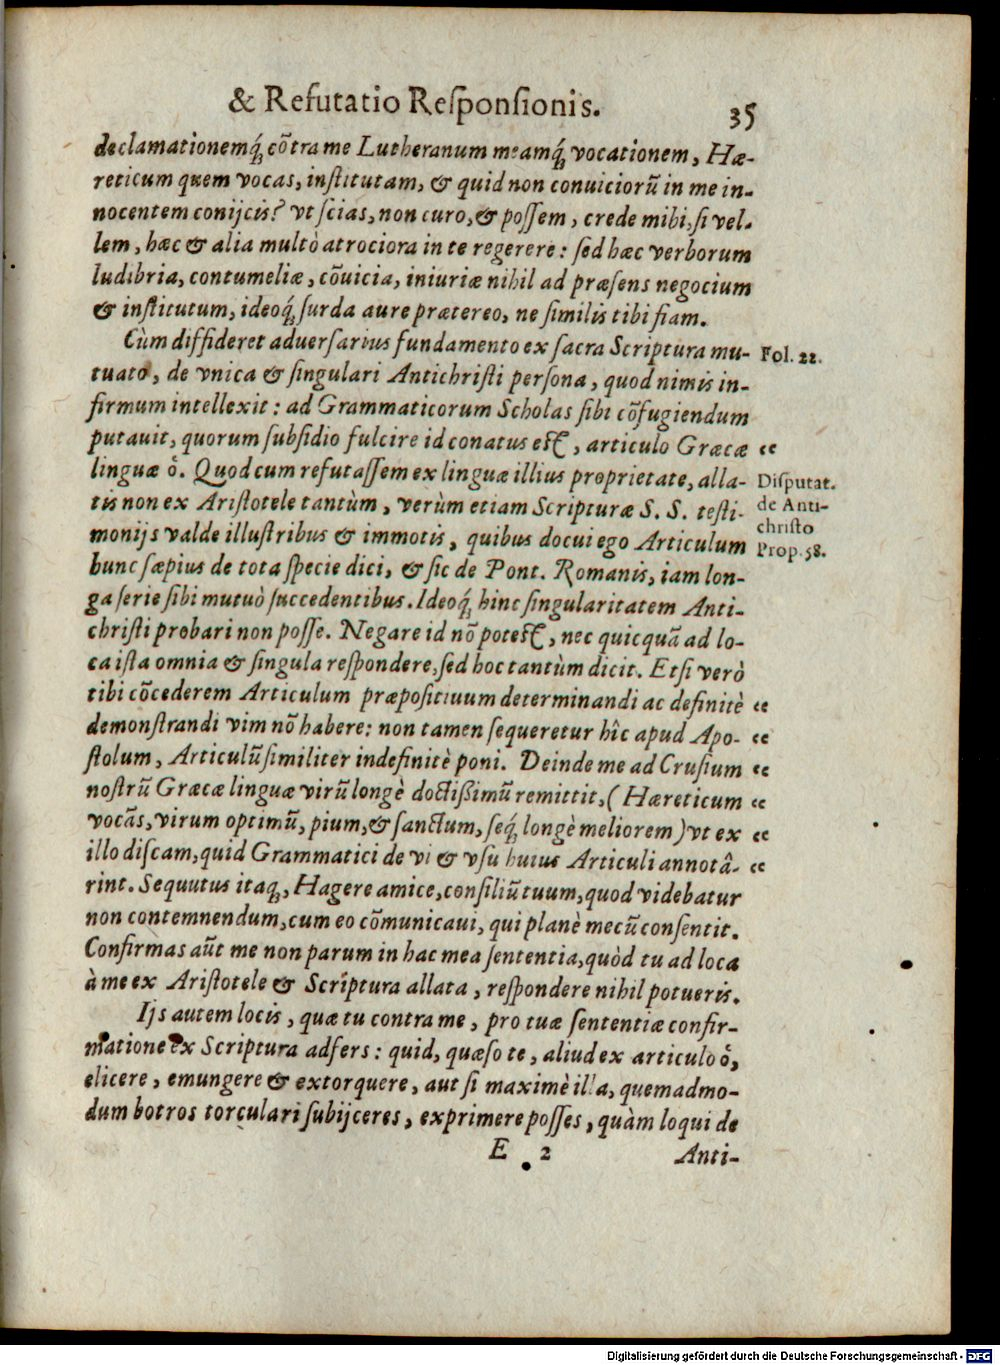 & Refutatio Responsionis. 35
declamationemq́; cõtra me Lutheranum meamq́; vocationem, Hæ-
reticum quem vocas, institutam, & quid non conuiciorũ in me in-
nocentem conijcis? vt scias, non curo, & possem, crede mihi, si vel-
lem, hæc & alia multò atrociora in te regerere: sed hæc verborum
ludibria, contumeliæ, cõuicia, iniuriæ nihil ad præsens negocium
& institutum, ideoq́; surda aure prætereo, ne similis tibi fiam.
Cùm diffideret aduersarius fundamento ex sacra Scriptura mu-
Fol. 22.
tuato, de vnica & singulari Antichristi persona, quod nimis in-
firmum intellexit: ad Grammaticorum Scholas sibi cõfugiendum
putauit, quorum subsidio fulcire id conatus est, articulo Græcæ “
linguæ ὁ. Quod cum refutassem ex linguæ illius proprietate, alla-
Disputat.
tis non ex Aristotele tantùm, verùm etiam Scripturæ S. S. testi-
de Anti-
monijs valde illustribus & immotis, quibus docui ego Articulum
christo
Prop. 58.
hunc sæpius de tota specie dici, & sic de Pont. Romanis, iam lon-
ga serie sibi mutuò succedentibus. Ideoq́; hinc singularitatem Anti-
christi probari non posse. Negare id nõ potest, nec quicquã ad lo-
ca ista omnia & singula respondere, sed hoc tantùm dicit. Etsi verò
tibi cõcederem Articulum præpositiuum determinandi ac definitè “
demonstrandi vim nõ habere: non tamen sequeretur hîc apud Apo- “
stolum, Articulũ similiter indefinitè poni. Deinde me ad Crusium “
nostrũ Græcæ linguæ virũ longè doctißimũ remittit, (Hæreticum “
vocãs, virum optimũ, pium, & sanctum, seq́; longè meliorem) vt ex “
illo discam, quid Grammatici de vi & vsu huius Articuli annotâ- “
rint. Sequutus itaq;, Hagere amice, consiliũ tuum, quod videbatur
non contemnendum, cum eo cõmunicaui, qui planè mecũ consentit.
Confirmas aũt me non parum in hac mea sententia, quòd tu ad loca
à me ex Aristotele & Scriptura allata, respondere nihil potueris.
Ijs autem locis, quæ tu contra me, pro tuæ sententiæ confir-
matione ex Scriptura adfers: quid, quæso te, aliud ex articulo ὁ,
elicere, emungere & extorquere, aut si maximè illa, quemadmo-
dum botros torculari subijceres, exprimere posses, quàm loqui de
E 2 Anti-
Digitalisierung gefördert durch die Deutsche Forschungsgemeinschaft - DFG